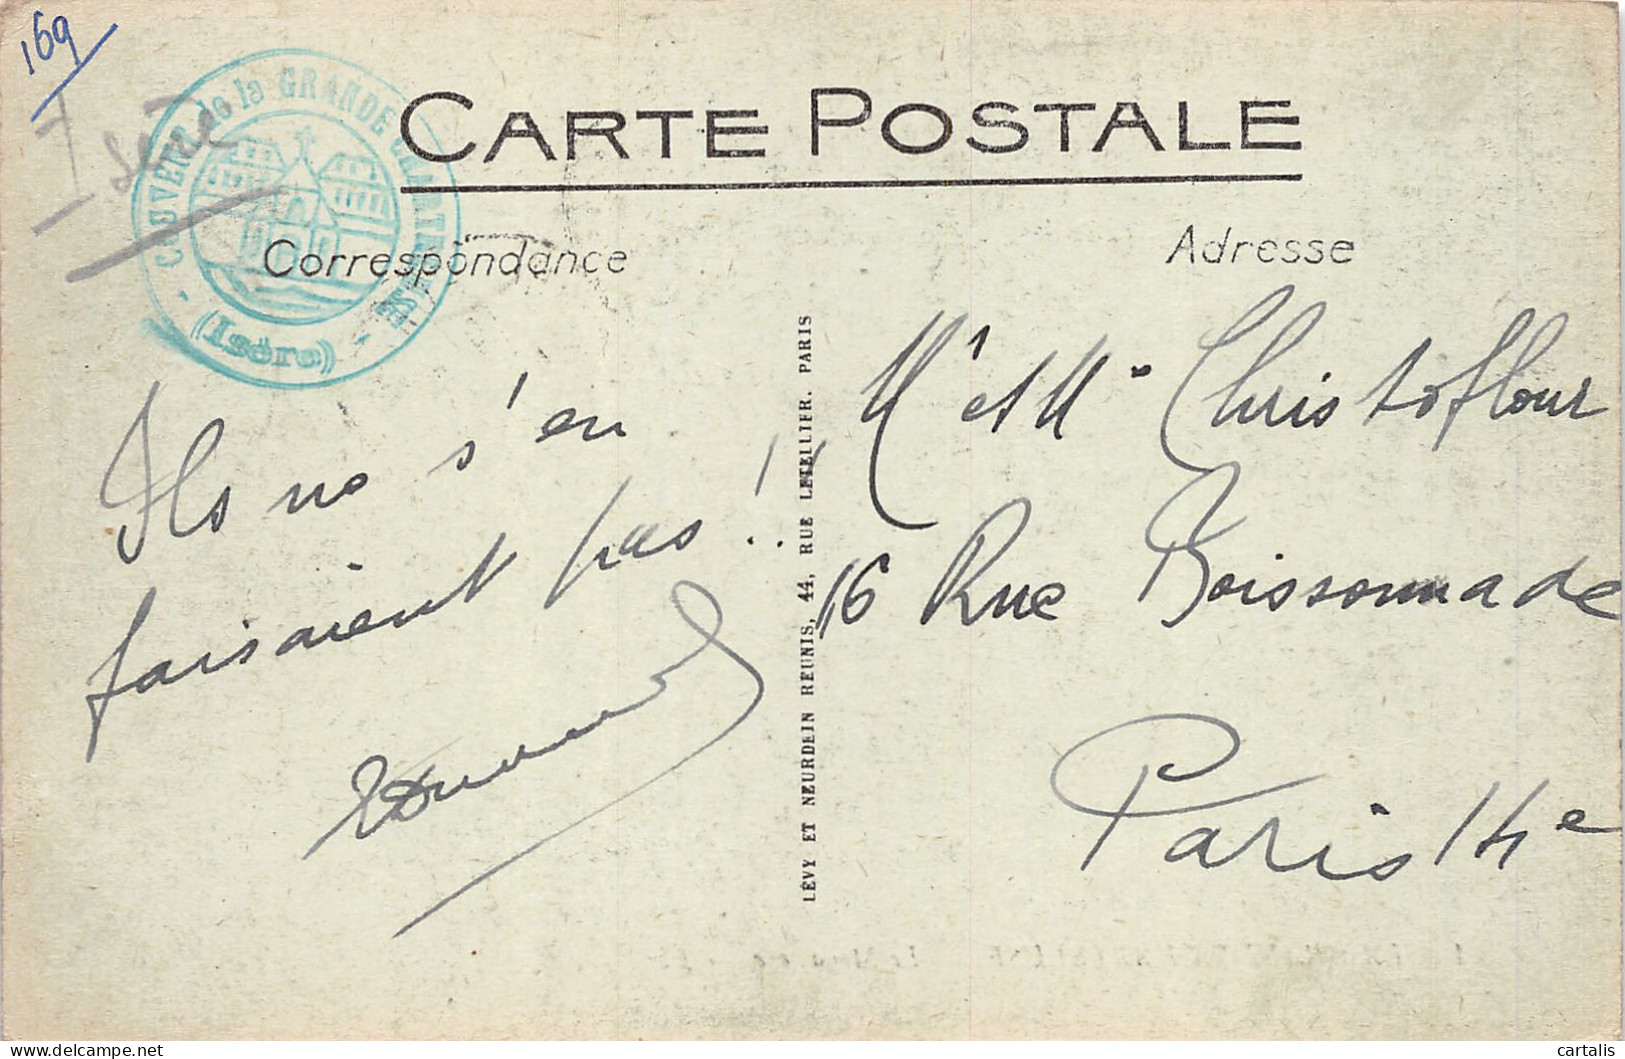 169
Isère
COUVENT de la GRANDE CHARTREUSE
(Isère)
CARTE POSTALE
Correspondance
Adresse
Ils ne s'en
faisaient pas !!
LÉVY ET NEURDEIN REUNIS, 44, RUE LETELLIER, PARIS
Mr et Me Christoflour
16 Rue Boissonnade
Paris 14e
delcampe.net
cartalis